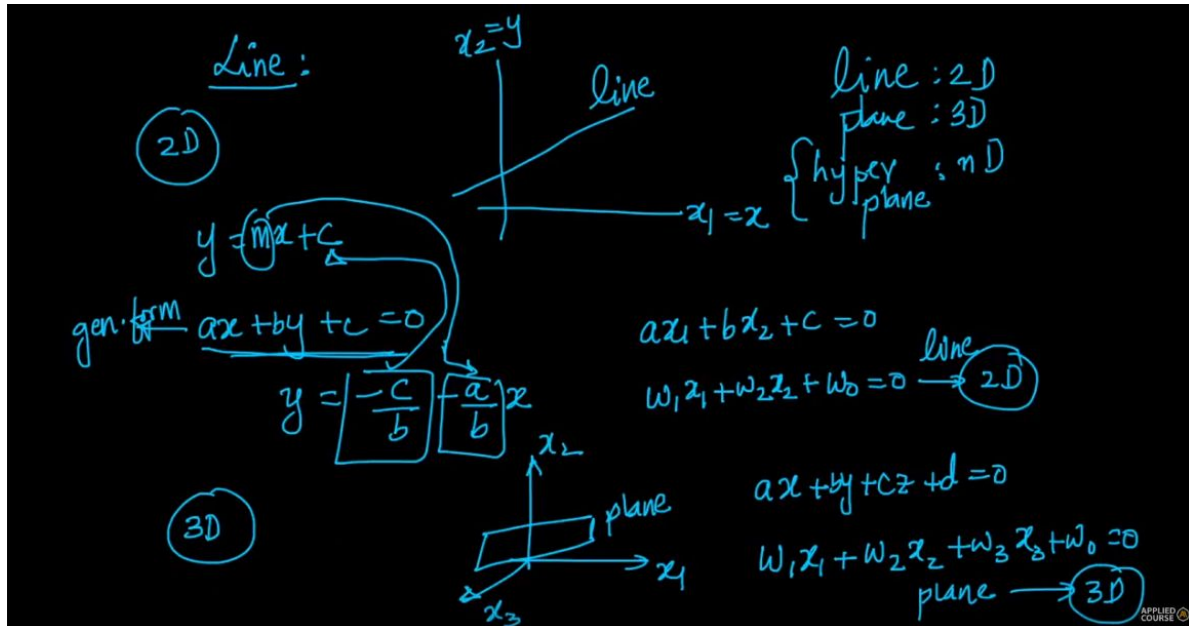 Line :
2D
x₂=y
line
x₁ = x
line : 2D
plane : 3D
{ hyper plane : nD
y = mx + c
gen. form ← ax + by + c = 0
y = -c/b -a/b x
ax₁ + bx₂ + c = 0
w₁x₁ + w₂x₂ + w₀ = 0 → line 2D
3D
x₂
plane
x₁
x₃
ax + by + cz + d = 0
w₁x₁ + w₂x₂ + w₃x₃ + w₀ = 0
plane → 3D
APPLIED
COURSE